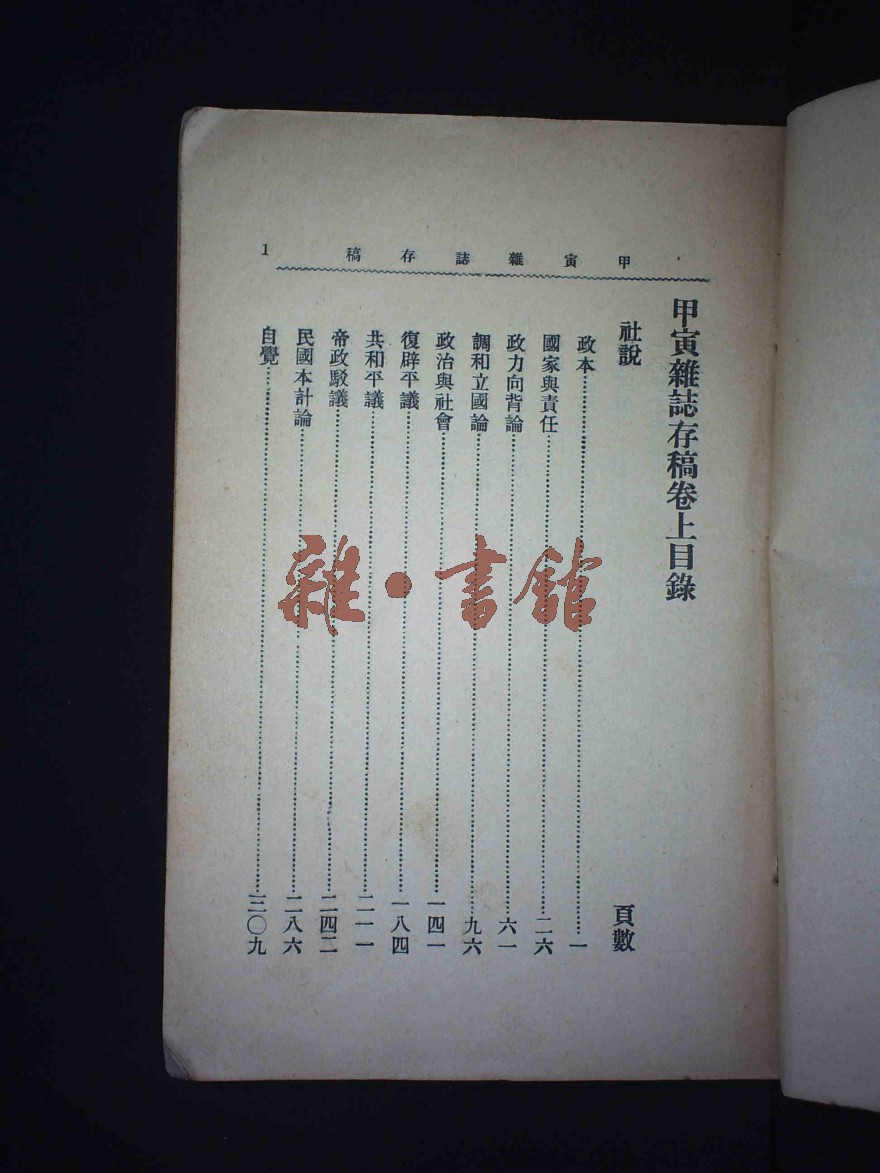 甲寅雜誌存稿
1
甲寅雜誌存稿卷上目錄
社說 頁數
政本……一
國家與責任……二六
政力向背論……六一
調和立國論……九六
政治與社會……一四一
復辟平議……一八四
共和平議……二一一
帝政駁議……二四二
民國本計論……二八六
自覺……三〇九
雜·書館